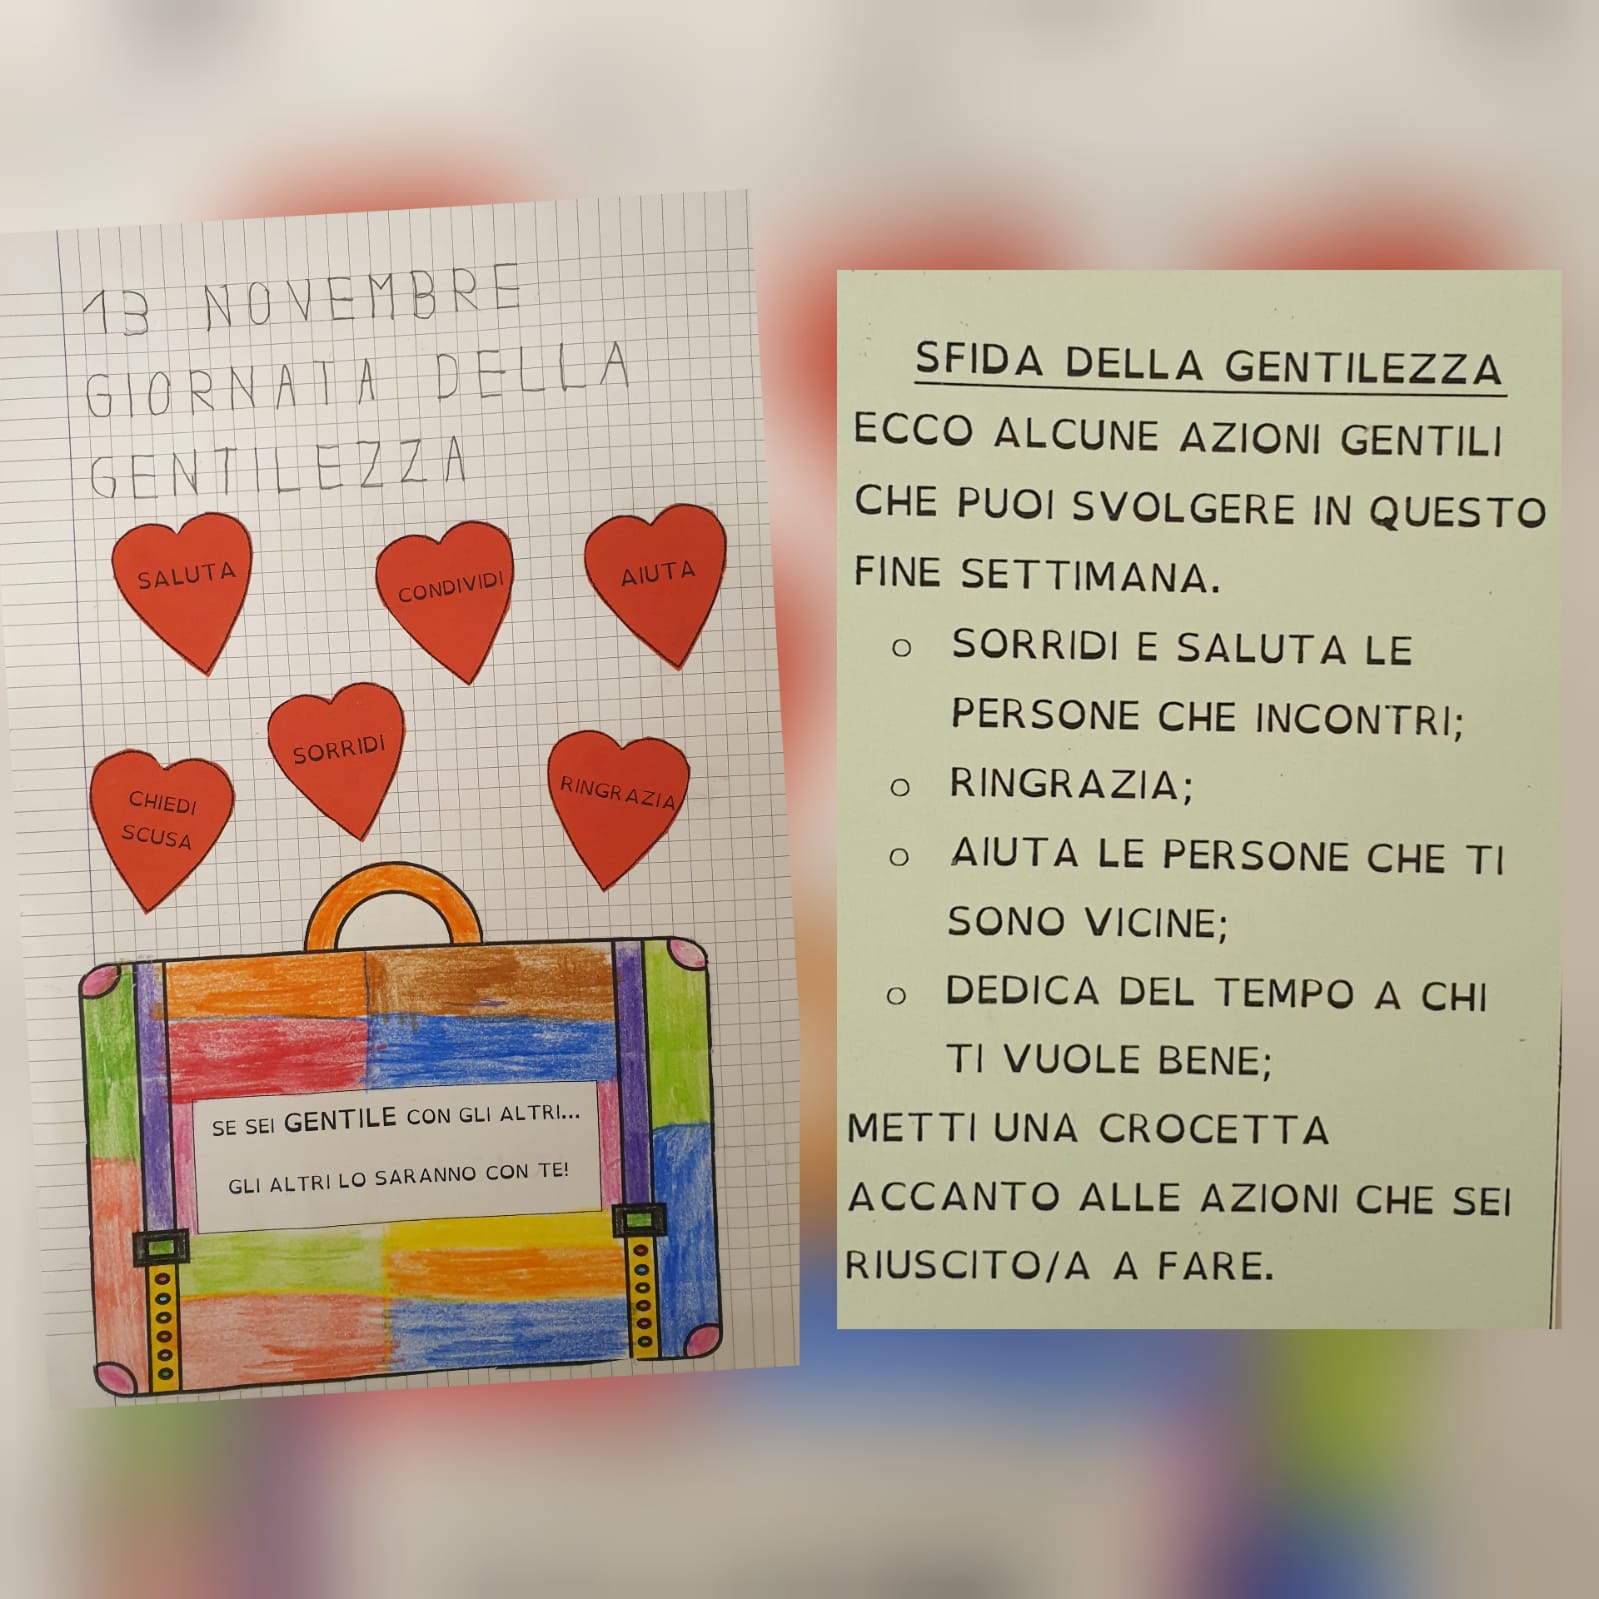 13 NOVEMBRE
GIORNATA DELLA
GENTILEZZA
SALUTA
CONDIVIDI
AIUTA
SORRIDI
CHIEDI
SCUSA
RINGRAZIA
SE SEI GENTILE CON GLI ALTRI...
GLI ALTRI LO SARANNO CON TE!
SFIDA DELLA GENTILEZZA
ECCO ALCUNE AZIONI GENTILI
CHE PUOI SVOLGERE IN QUESTO
FINE SETTIMANA.
o SORRIDI E SALUTA LE
PERSONE CHE INCONTRI;
o RINGRAZIA;
o AIUTA LE PERSONE CHE TI
SONO VICINE;
o DEDICA DEL TEMPO A CHI
TI VUOLE BENE;
METTI UNA CROCETTA
ACCANTO ALLE AZIONI CHE SEI
RIUSCITO/A A FARE.